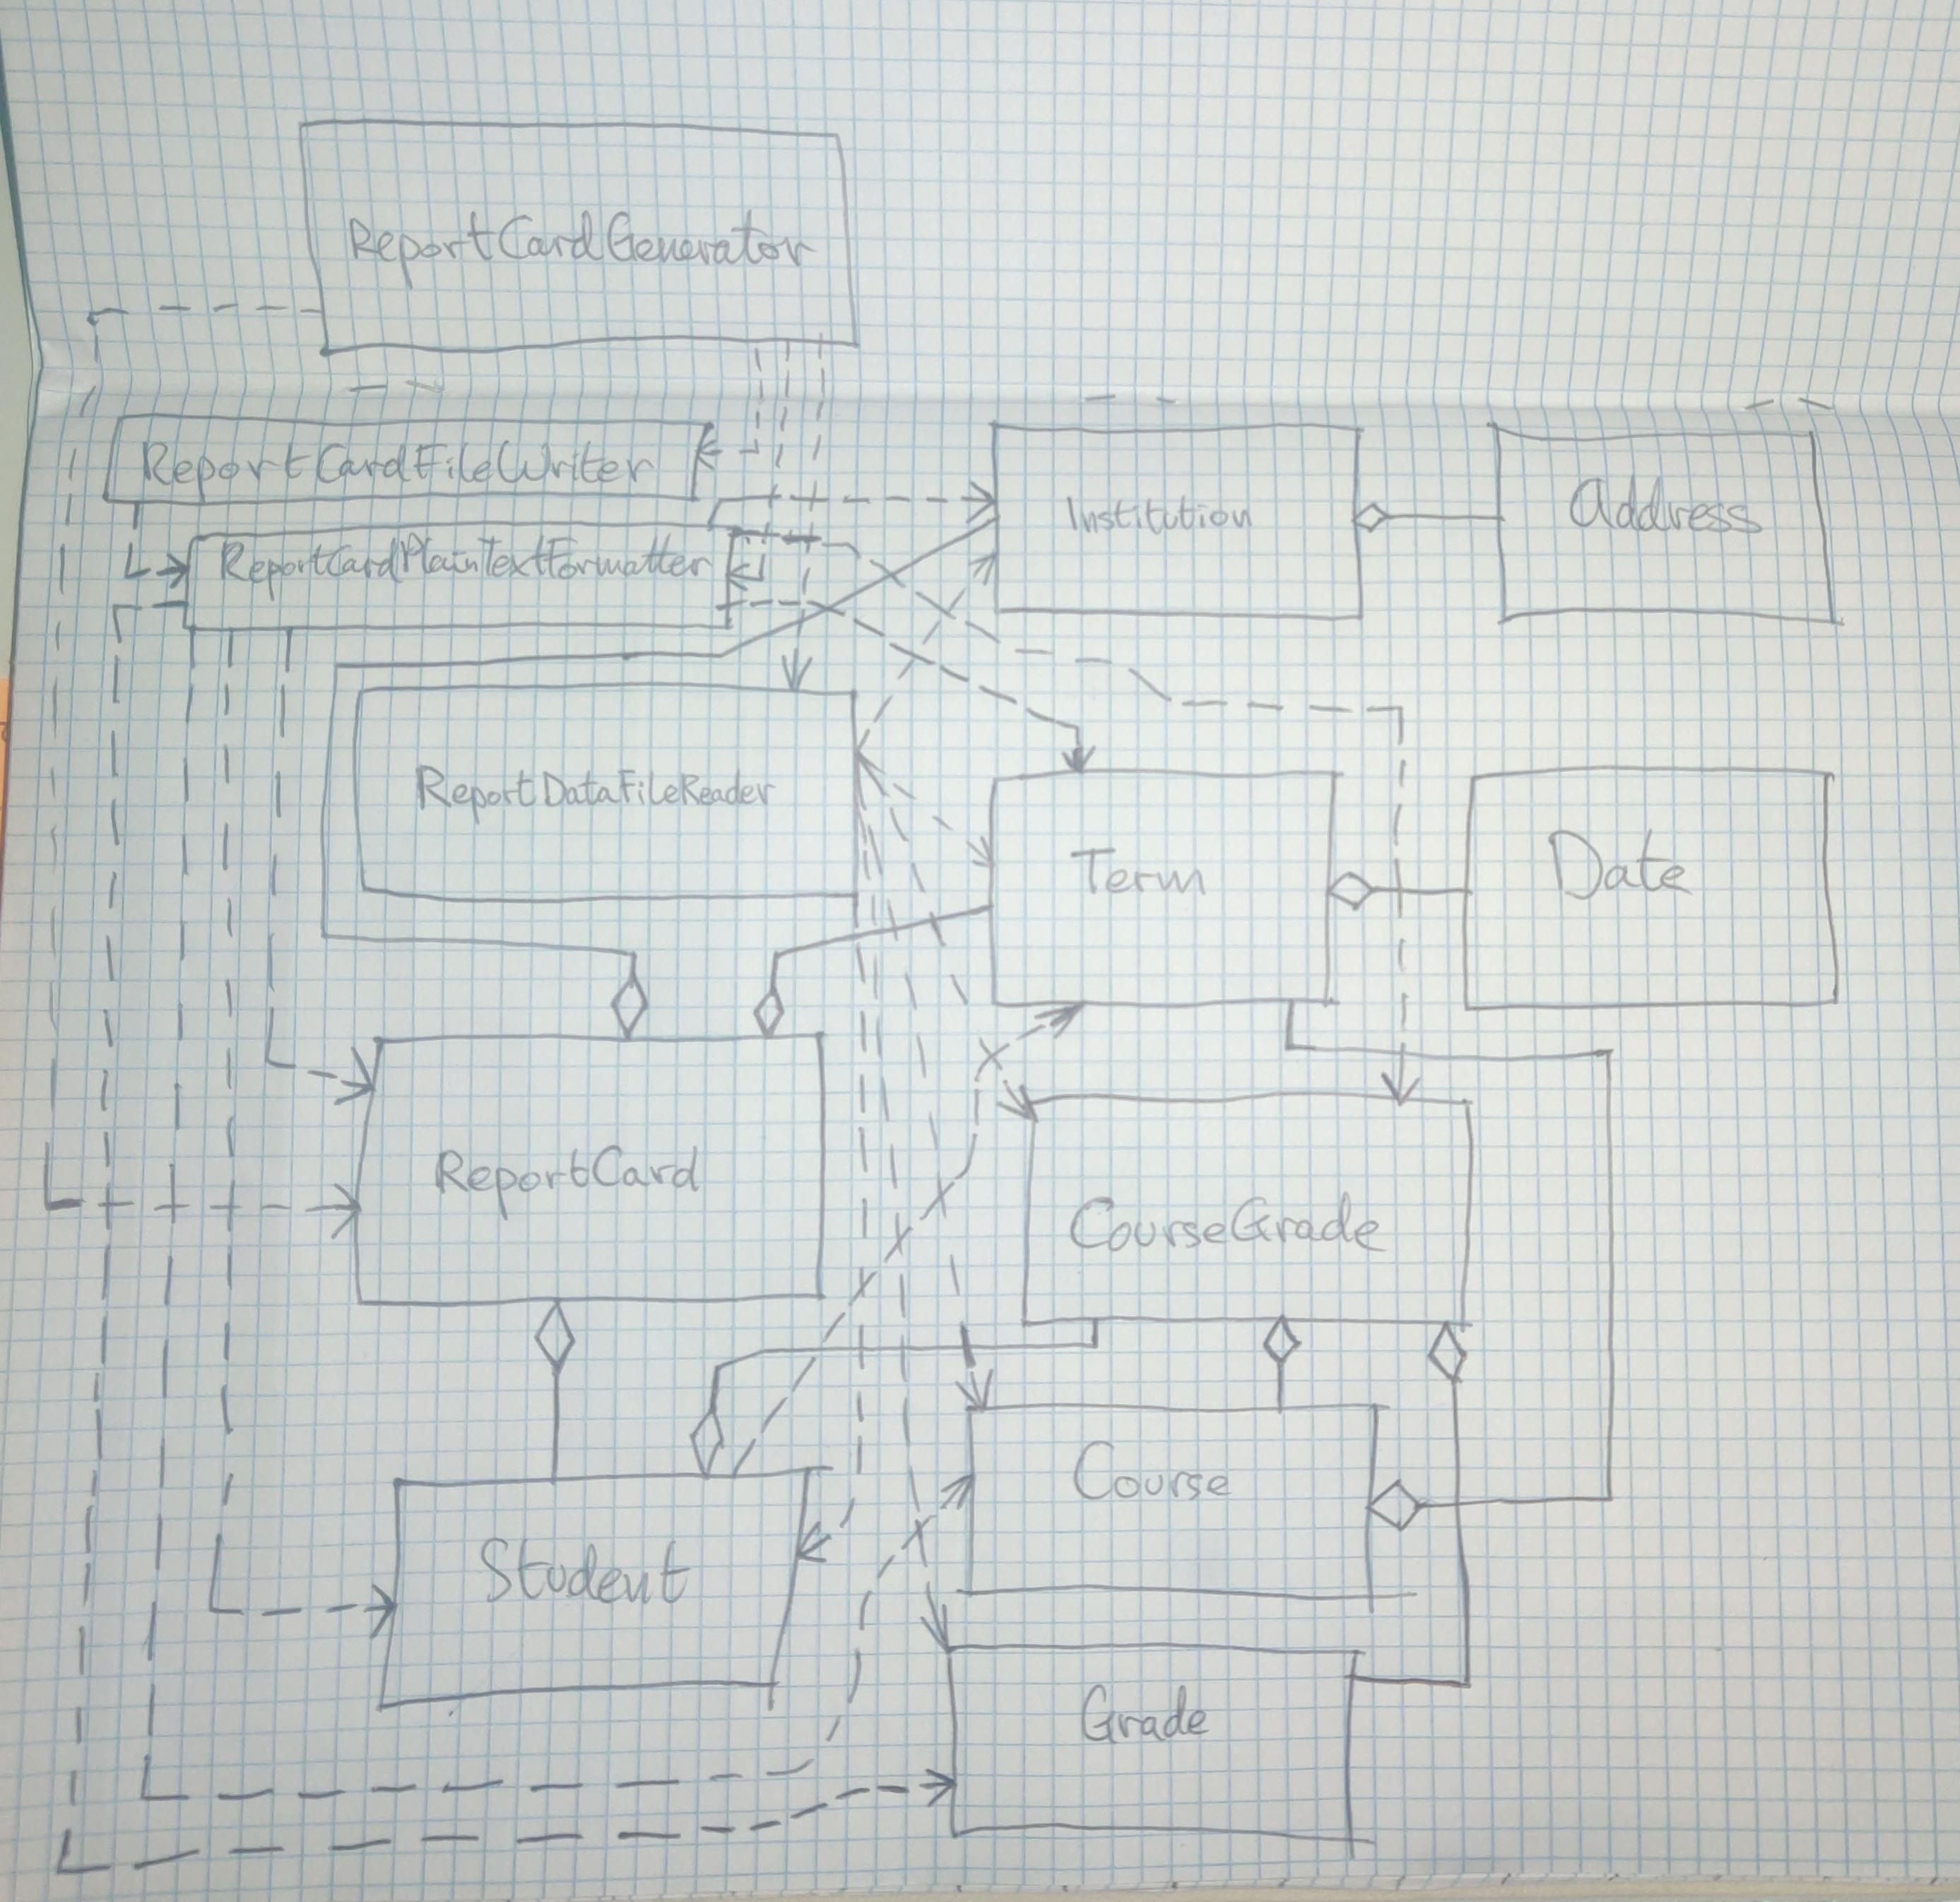 ReportCardGenerator
ReportCardFileWriter
ReportCardPlainTextFormatter
Institution
Address
ReportDataFileReader
Term
Date
ReportCard
CourseGrade
Course
Student
Grade